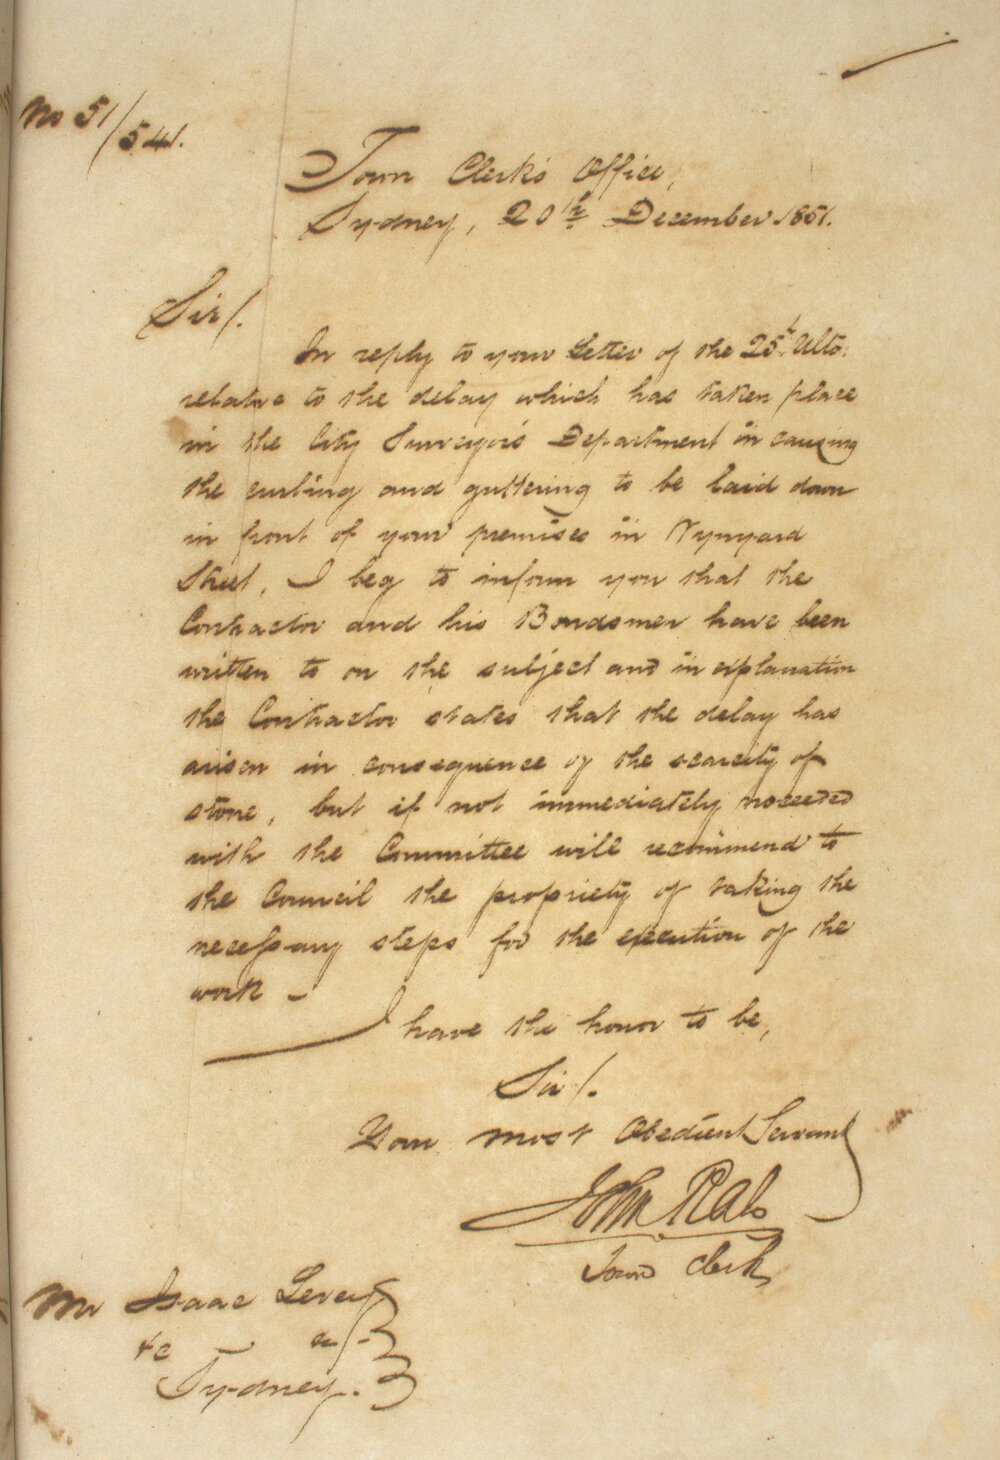 No 51/541.
Town Clerk's Office,
Sydney, 20th December 1851.
Sir/.
In reply to your Letter of the 25t. Ulto:
relative to the delay which has taken place
in the City Surveyor's Department in causing
the curbing and guttering to be laid down
in front of your premises in Wynyard
Street, I beg to inform you that the
Contractor and his Bondsmen have been
written to on the subject and in explanation
the Contractor states that the delay has
arisen in consequence of the scarcity of
stone, but if not immediately proceeded
with the Committee will recommend to
the Council the propriety of taking the
necessary steps for the execution of the
work –
I have the honor to be,
Sir/.
Your most Obedient Servant
John Rae
Town Clerk
Mr Isaac Levey
&c &c/-
Sydney.